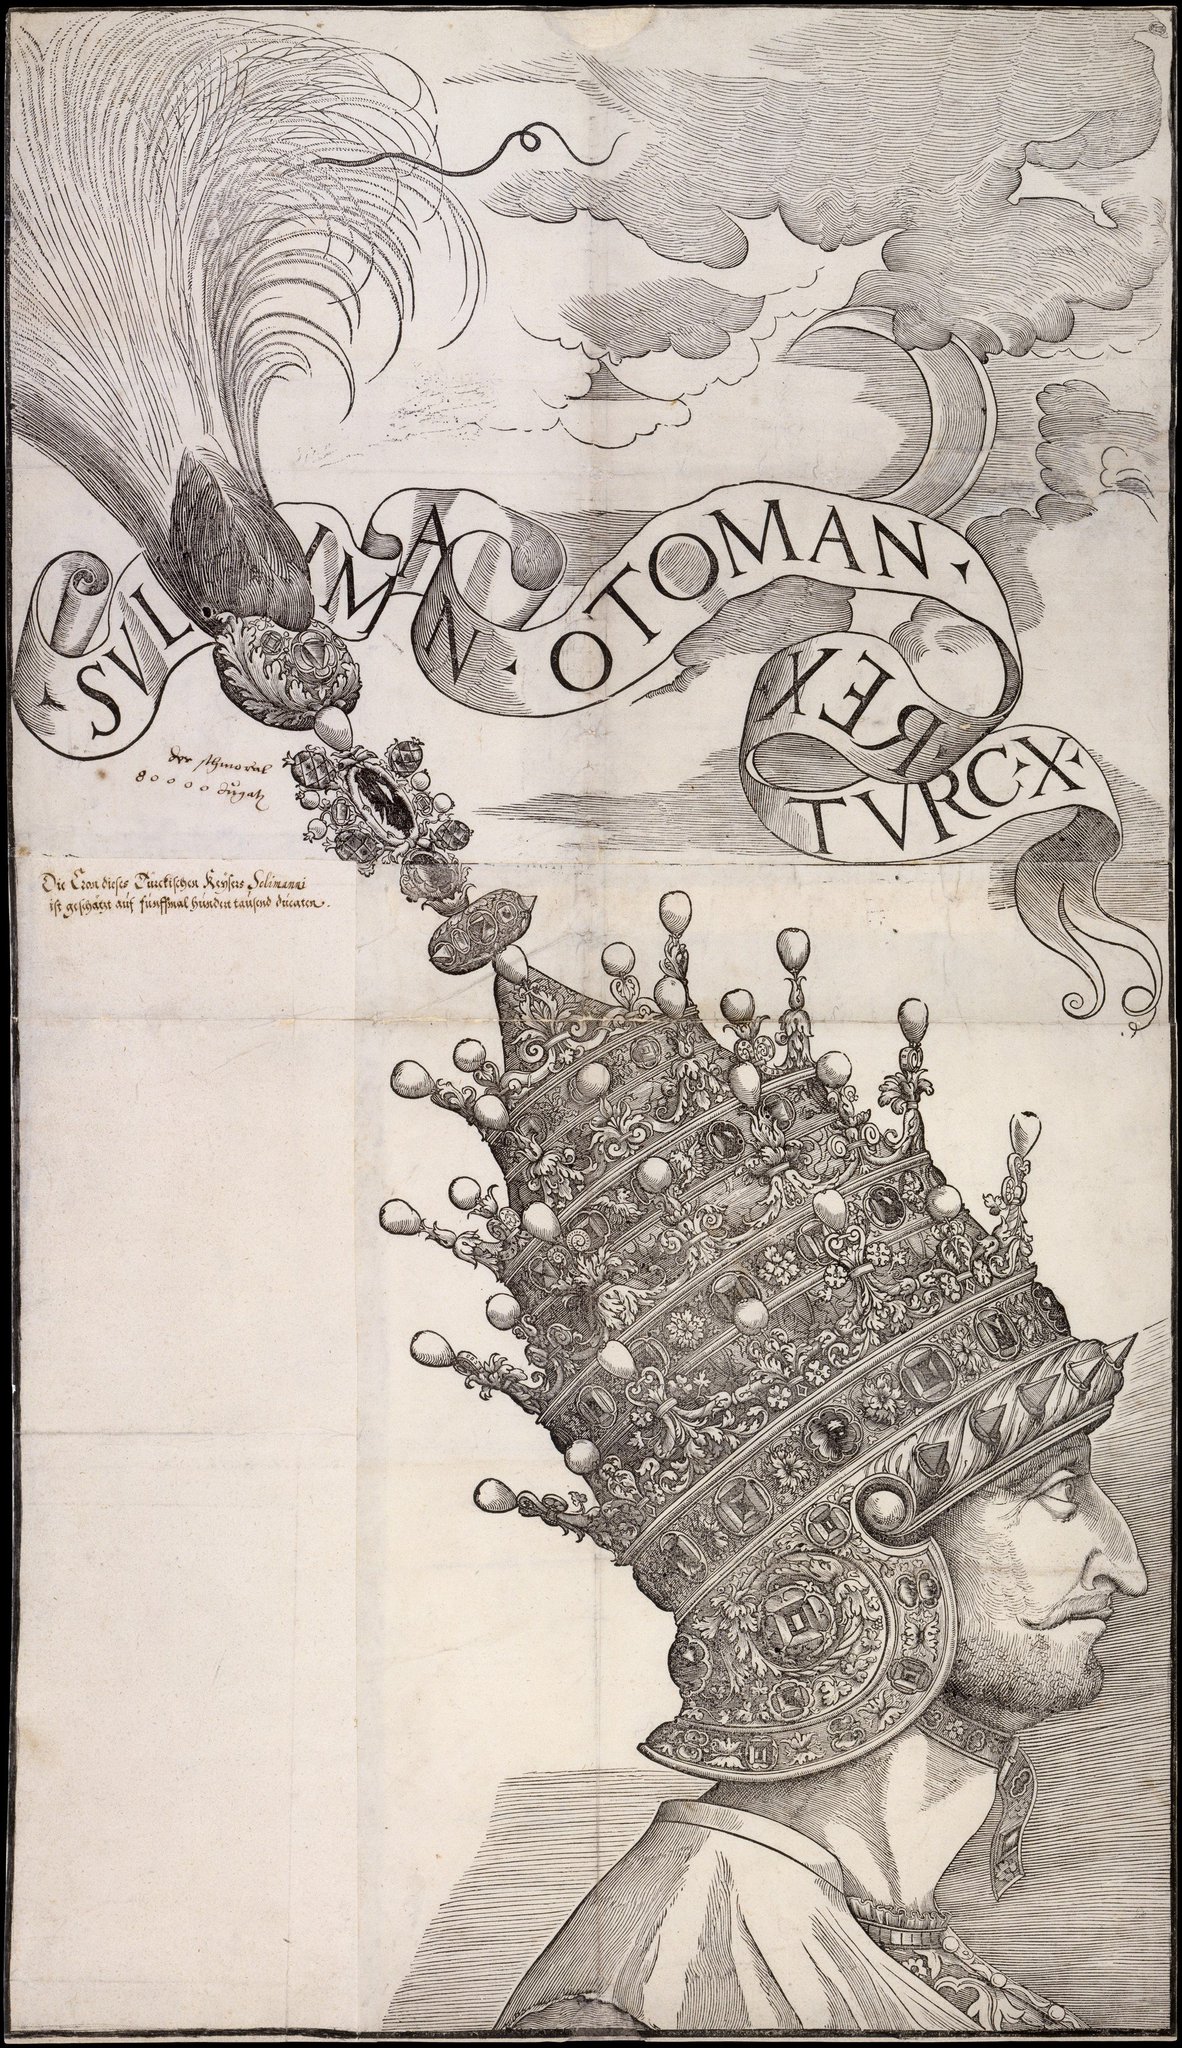 · SVL YMAN · OTOMAN ·
REX
TVRC·X·
der schmoral
80000 dugatz
Die Cron dieses Türckischen Keysers Solimanni
ist geschätzt auf fünffmal hundert tausend ducaten.